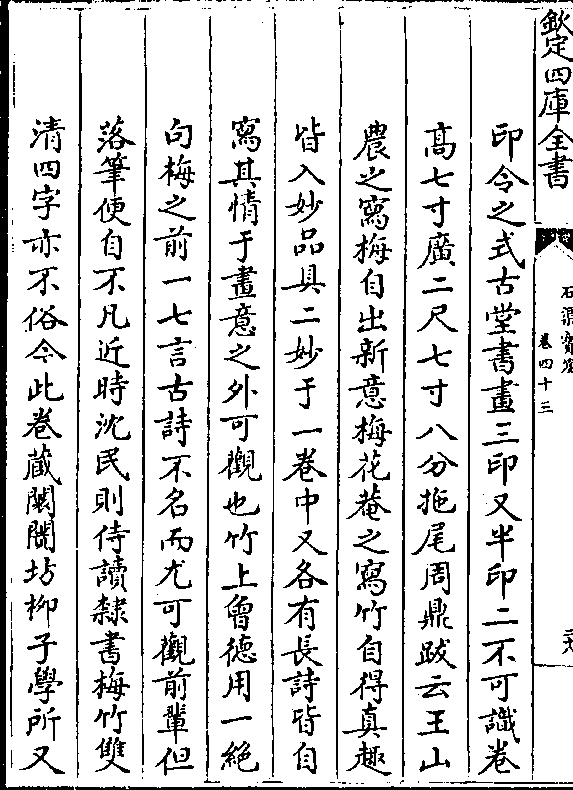 欽定四庫全書
石渠寶笈
卷四十三
三六
印令之式古堂書畫三印又半印二不可識卷
高七寸廣二尺七寸八分拖尾周鼎跋云王山
農之寫梅自出新意梅花菴之寫竹自得真趣
皆入妙品具二妙于一卷中又各有長詩皆自
寫其情于畫意之外可觀也竹上曾德用一絶
句梅之前一七言古詩不名而尤可觀前輩但
落筆便自不凡近時沈民則侍讀隸書梅竹雙
清四字亦不俗今此卷藏闕閒坊柳子學所又